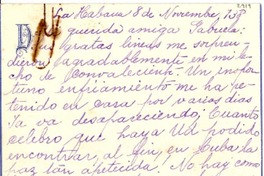 La Habana 8 de Noviembre, 938
Mi querida amiga Gabriela:
Sus gratas líneas me sorpren
dieron agradablemente en mi le
cho de convaleciente. Un inopor
tuno enfriamiento me ha re
tenido en casa por varios días
Ya va desapareciendo. ¡Cuánto
celebro que haya Ud podido
encontrar, al fin, en Cuba la
paz tan apetecida! No hay como